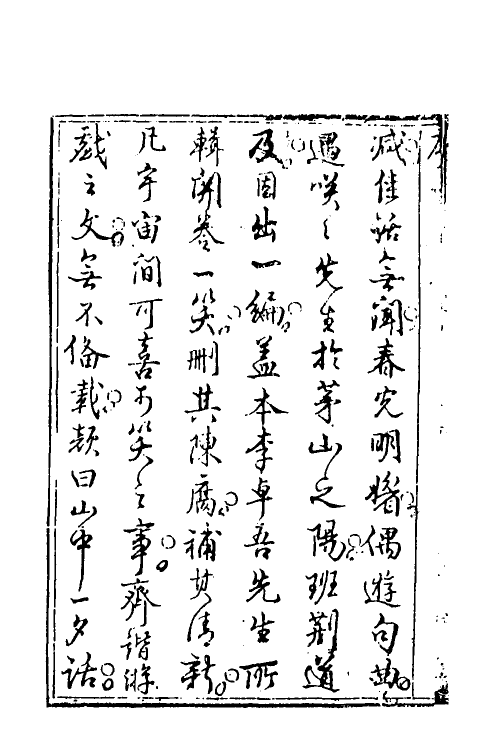 减佳話無聞春光明媚偶遊句曲
遇咲々先生於茅山之陽班荆道
及因出一編盖本李卓吾先生所
輯開卷一笑刪其陳腐補其清新
凡宇宙間可喜可笑之事齊諧游
戲之文無不備載顔曰山中一夕話